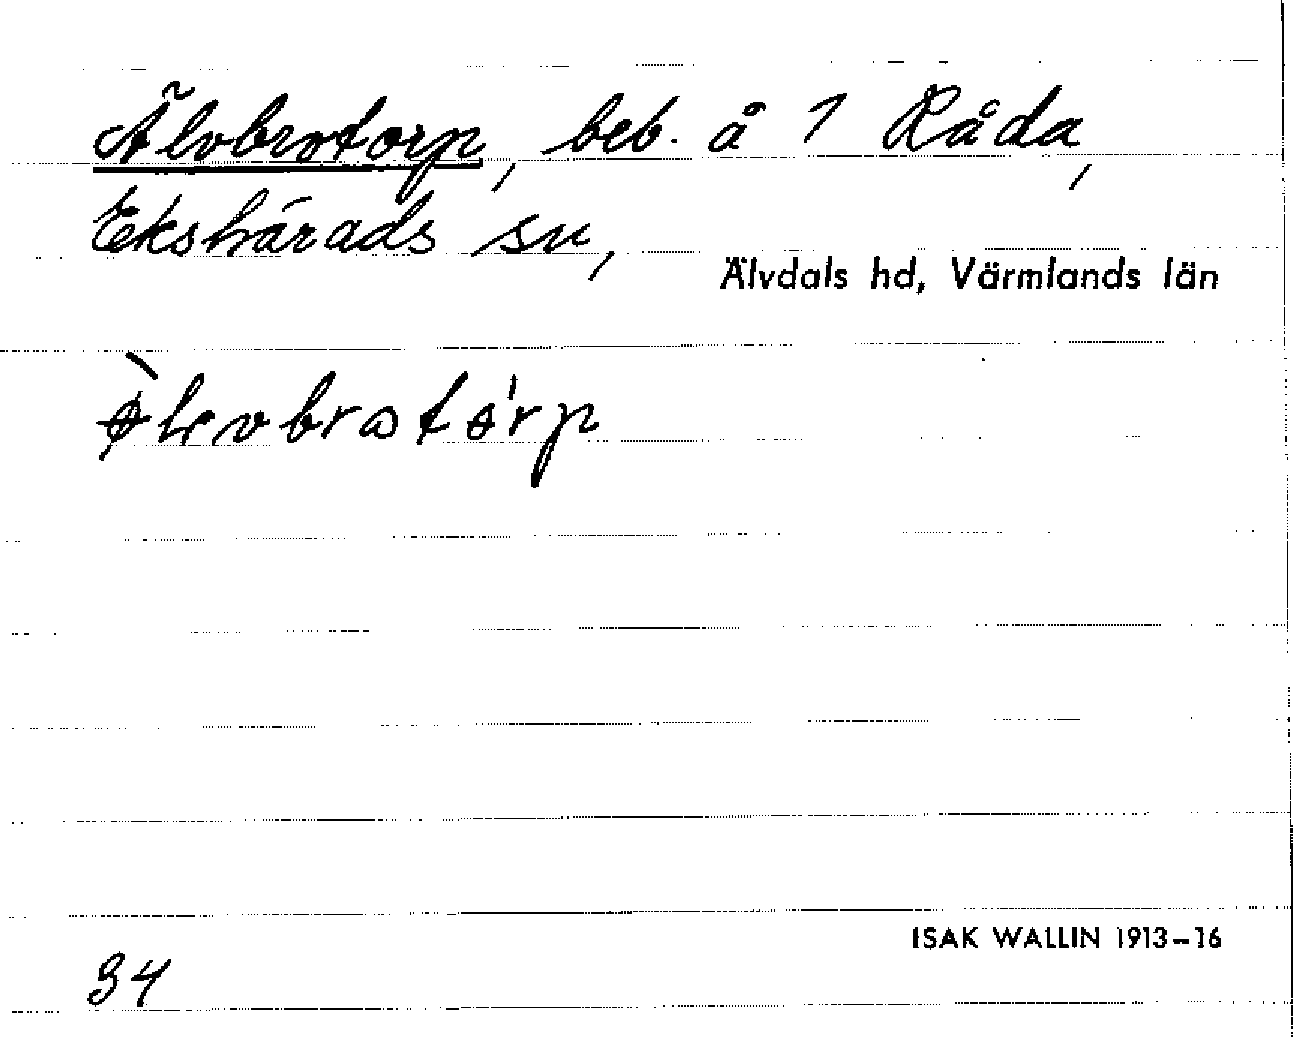 Älvbrotorp, beb. å 1 Råda,
Ekshärads sn,
Älvdals hd, Värmlands län
ISAK WALLIN 1913-16
34